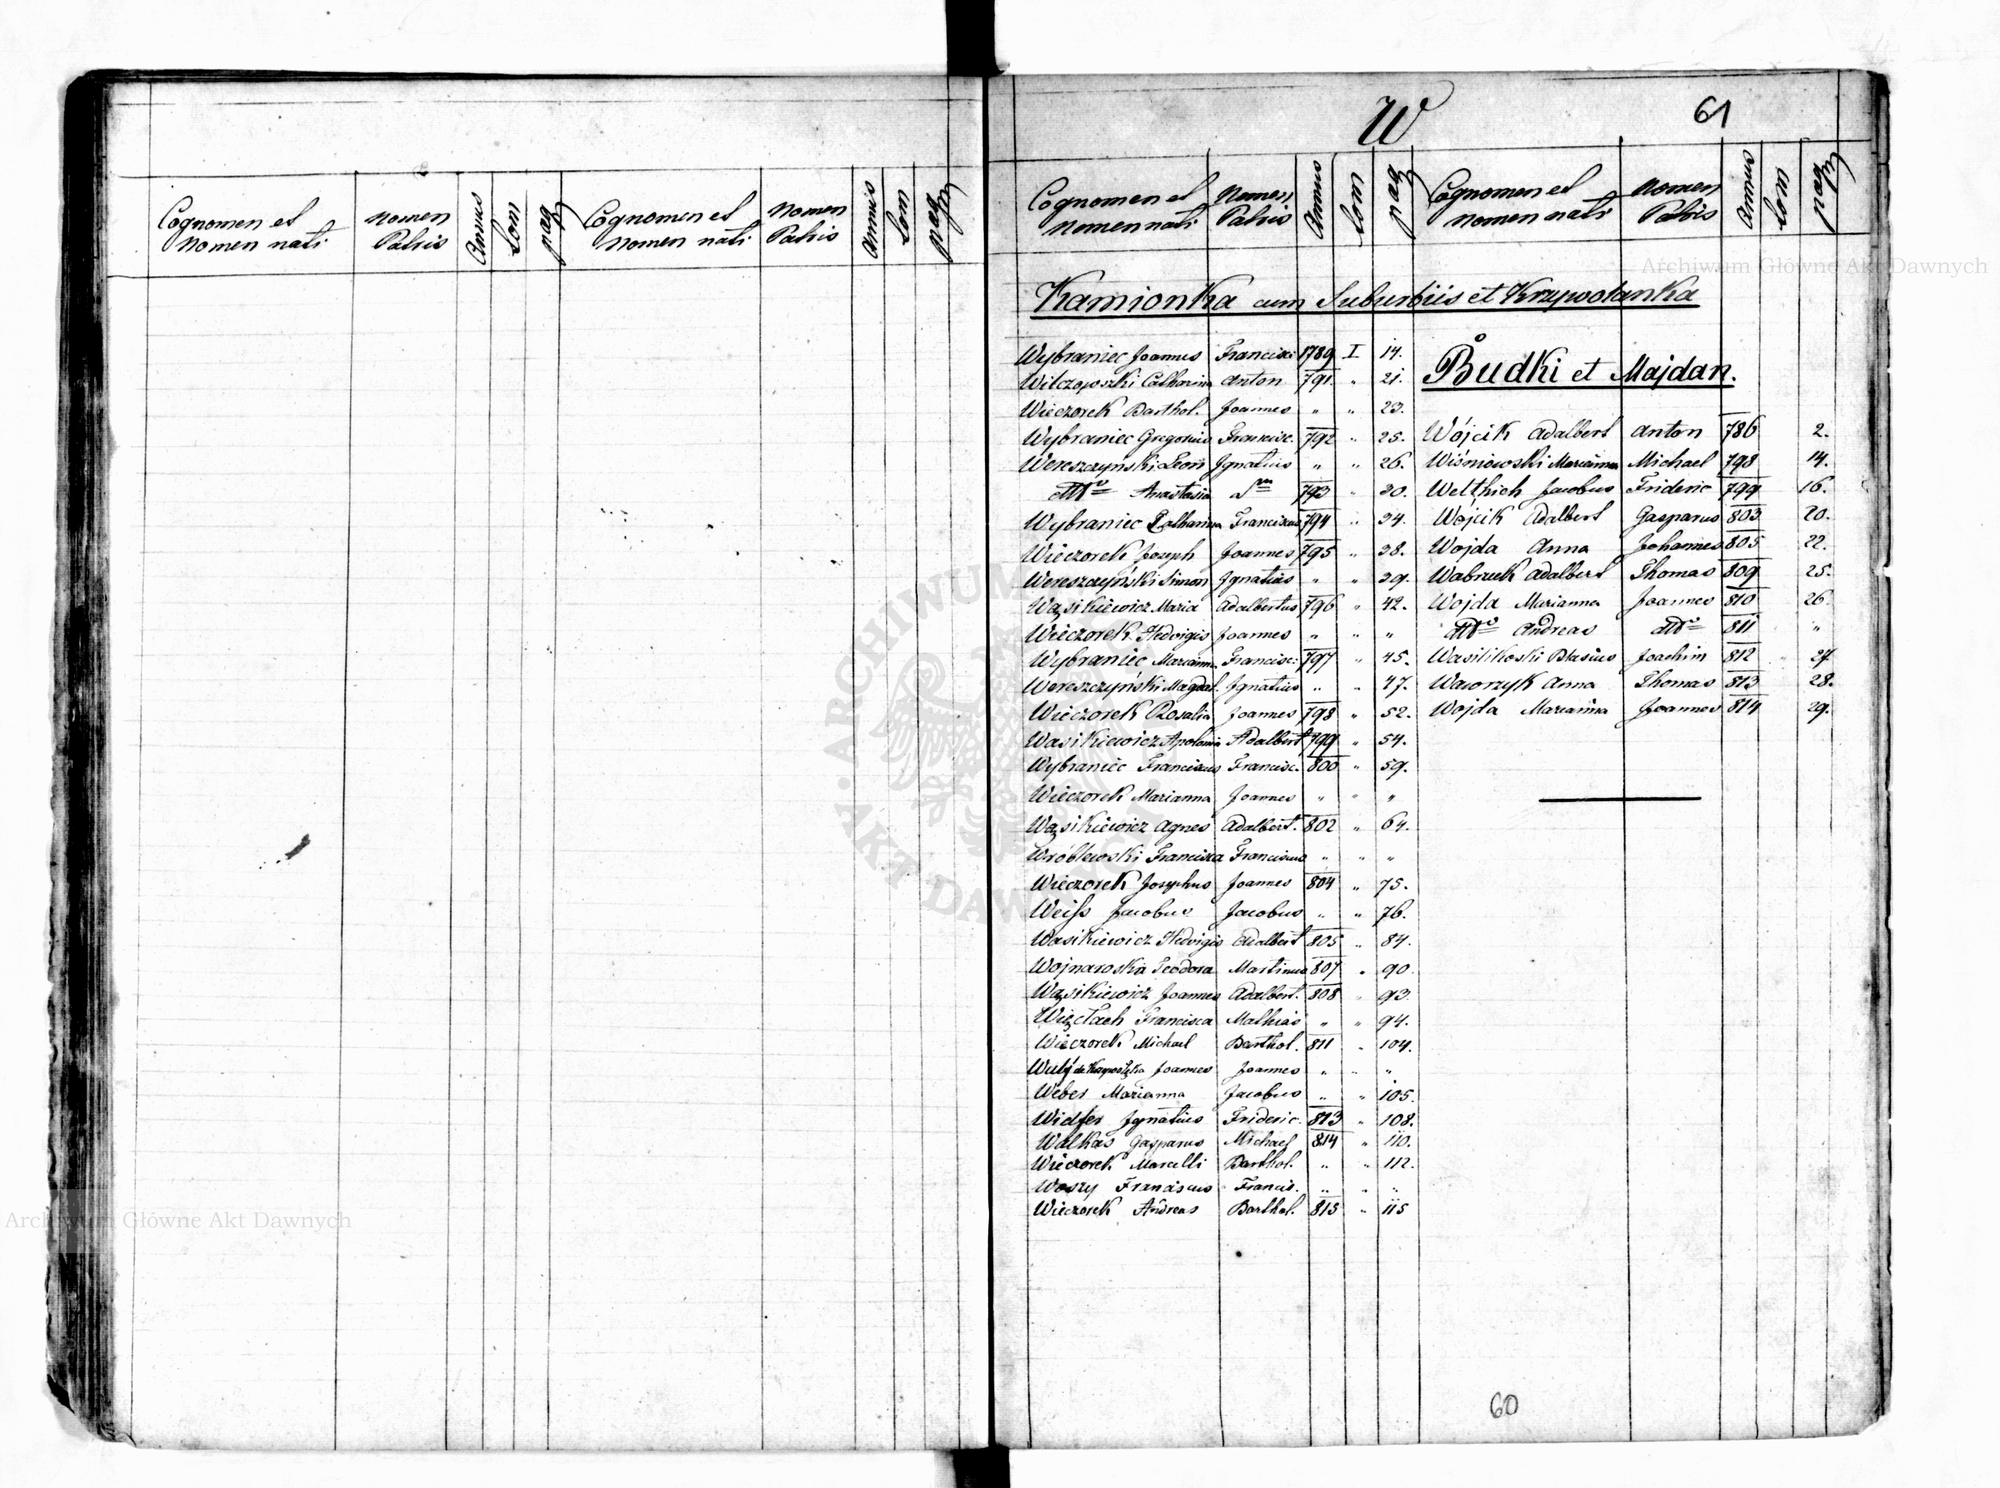 Cognomen et nomen nati
Nomen Patris
Annus
Tom
pag
Cognomen et nomen nati
Nomen Patris
Annus
Tom
pag
W
61
Cognomen et nomen nati
Nomen Patris
Annus
Tom
pag
Cognomen et nomen nati
Nomen Patris
Annus
Tom
pag
Kamionka cum Suburbiis et Krzywolanka
Wybraniec Joannes Francisci 1789 I 14.
Wilczopolski Catharina Anton 791. " 21.
Wieczorek Barthol. Joannes " " 23.
Wybraniec Gregorius Francisc. 792 " 25.
Wereszczyński Leon Ignatius " " 26.
dtto Anastasia dto 793 " 30.
Wybraniec Catharina Franciscus 794 " 34.
Wieczorek Joseph Joannes 795 " 38.
Wereszczyński Simon Ignatius " " 39.
Wąsikiewicz Maria Adalbertus 796 " 42.
Wieczorek Hedvigis Joannes " " "
Wybraniec Marianna Francisc: 797 " 45.
Wereszczyński Magdal. Ignatius " " 47.
Wieczorek Rosalia Joannes 798 " 52.
Wasikiewicz Apolonia Adalbert 799 " 54.
Wybraniec Franciscus Francisc. 800 " 59.
Wieczorek Marianna Joannes " " "
Wąsikiewicz Agnes Adalbert. 802 " 64.
Wróblewski Francisca Franciscus " " "
Wieczorek Josephus Joannes 804 " 75.
Weiss Jacobus Jacobus " " 76.
Wasikiewicz Hedvigis Adalbert 805 " 84.
Wojnaroska Teodora Martinus 807 " 90.
Wąsikiewicz Joannes Adalbert. 808 " 93.
Więcłach Francisca Mathias " " 94.
Wieczorek Michael Barthol. 811 " 104.
Joannes Joannes " " "
Weber Marianna Jacobus " " 105.
Widfer Ignatius Frideric. 813 " 108.
Walkas Gasparus Michael 814 " 110.
Wieczorek Marcelli Barthol. " " 112.
Woszy Franciscus Francis. " " "
Wieczorek Andreas Barthol. 815 " 115
Budki et Majdan.
Wójcik Adalbert Anton 786 2.
Wiśniowski Marianna Michael 798 14.
Welthich Jacobus Frideric 799 16.
Wójcik Adalbert Gasparus 803 20.
Wojda Anna Johannes 805 22.
Wabrzek Adalbert Thomas 809 25.
Wojda Marianna Joannes 810 26.
dtto Andreas dtto 811 "
Wasilikoski Blasius Joachim 812 27
Wawrzyk Anna Thomas 813 28.
Wojda Marianna Joannes 814 29.
60
Archiwum Główne Akt Dawnych
Archiwum Główne Akt Dawnych